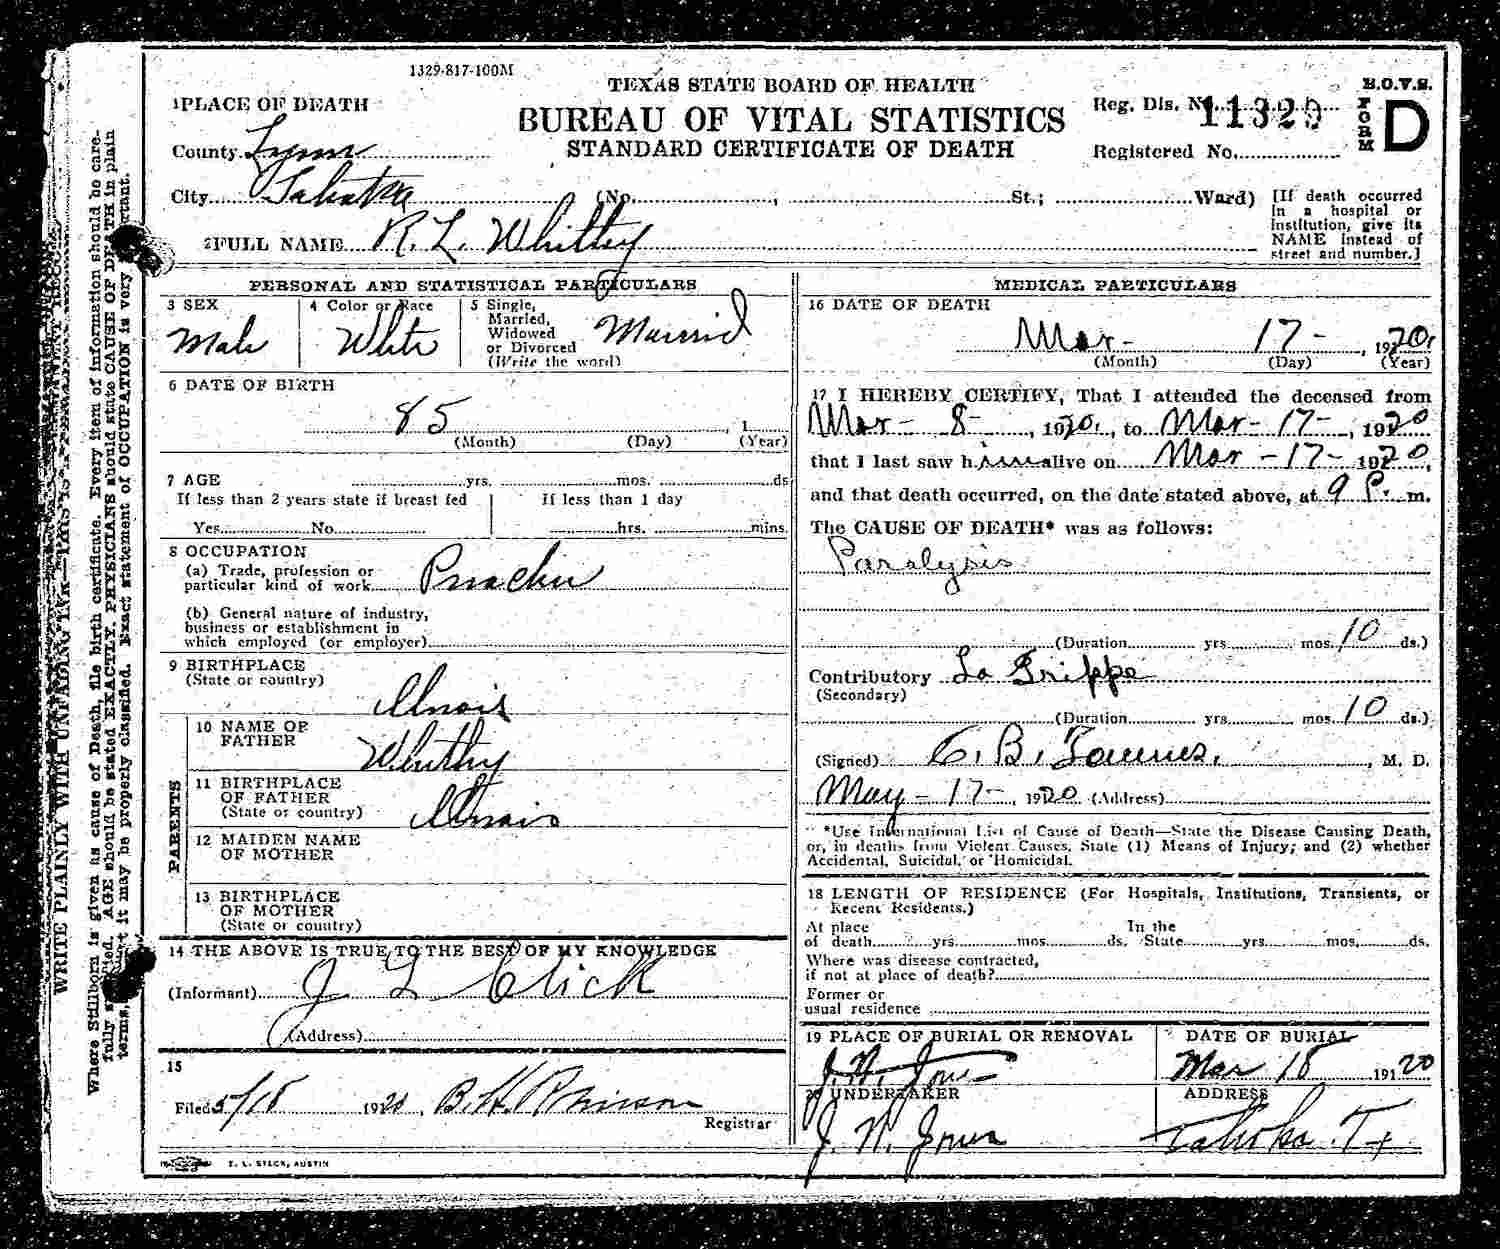 1329-817-100M
TEXAS STATE BOARD OF HEALTH
BUREAU OF VITAL STATISTICS
STANDARD CERTIFICATE OF DEATH
Reg. Dis. No. 11329
Registered No.
B.O.V.S.
FORM D
1 PLACE OF DEATH
County Lynn
City Tahoka (No. , St.; Ward)
[If death occurred
in a hospital or
institution, give its
NAME instead of
street and number.]
2 FULL NAME R. L. Whitley
PERSONAL AND STATISTICAL PARTICULARS
3 SEX
Male
4 Color or Race
White
5 Single,
Married,
Widowed
or Divorced
(Write the word)
Married
6 DATE OF BIRTH
85 , 1
(Month) (Day) (Year)
7 AGE yrs. mos. ds
If less than 2 years state if breast fed
Yes No
If less than 1 day
hrs. mins.
8 OCCUPATION
(a) Trade, profession or
particular kind of work Preacher
(b) General nature of industry,
business or establishment in
which employed (or employer)
9 BIRTHPLACE
(State or country)
Illinois
PARENTS
10 NAME OF
FATHER
Whitley
11 BIRTHPLACE
OF FATHER
(State or country)
Illinois
12 MAIDEN NAME
OF MOTHER
13 BIRTHPLACE
OF MOTHER
(State or country)
14 THE ABOVE IS TRUE TO THE BEST OF MY KNOWLEDGE
(Informant) J L Click
(Address)
15
Filed 5/18 1920, B. H. Robinson
Registrar
MEDICAL PARTICULARS
16 DATE OF DEATH
Mar- 17- , 1920.
(Month) (Day) (Year)
17 I HEREBY CERTIFY, That I attended the deceased from
Mar- 8- , 1920., to Mar-17- , 1920
that I last saw him alive on Mar-17- 1920,
and that death occurred, on the date stated above, at 9 P. m.
The CAUSE OF DEATH* was as follows:
Paralysis
(Duration yrs. mos. 10 ds.)
Contributory La Grippe
(Secondary)
(Duration yrs. mos. 10 ds.)
(Signed) C. B. Townes. , M. D.
May-17-, 1920 (Address)
*Use International List of Cause of Death—State the Disease Causing Death,
or, in deaths from Violent Causes, State (1) Means of Injury; and (2) whether
Accidental, Suicidal, or Homicidal.
18 LENGTH OF RESIDENCE (For Hospitals, Institutions, Transients, or
Recent Residents.)
At place In the
of death yrs. mos. ds. State yrs. mos. ds.
Where was disease contracted,
if not at place of death?
Former or
usual residence
19 PLACE OF BURIAL OR REMOVAL
J. N. Jones
DATE OF BURIAL
Mar 18 1920
20 UNDERTAKER
J. N. Jones
ADDRESS
Tahoka. Tx
E. L. STECK, AUSTIN
WRITE PLAINLY WITH UNFADING INK—THIS IS A PERMANENT RECORD
Where Stillborn is given as cause of Death, file birth certificate. Every item of information should be care-
fully supplied. AGE should be stated EXACTLY. PHYSICIANS should state CAUSE OF DEATH in plain
terms, that it may be properly classified. Exact statement of OCCUPATION is very important.